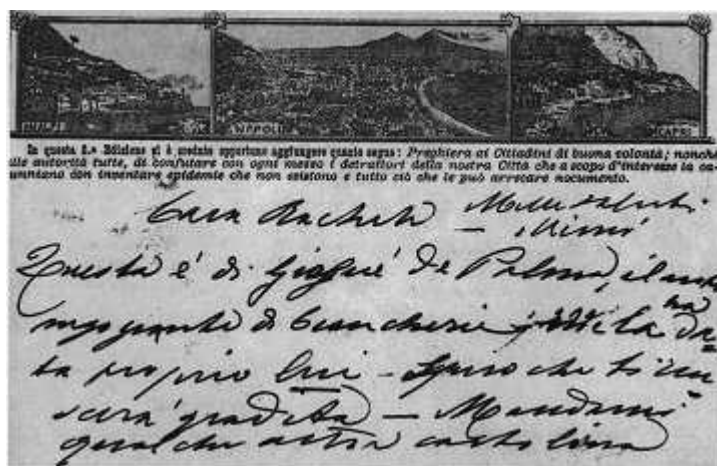 AMALFI NAPOLI CAPRI
In questa 2.a Edizione si è creduto opportuno aggiungere quanto segue: Preghiera ai Cittadini di buona volontà; nonchè
alle autorità tutte, di confutare con ogni mezzo i detrattori della nostra Città che a scopo d'interesse la ca-
lunniano con inventare epidemie che non esistono e tutto ciò che le può arrecare nocumento.
Cara Rachele Mille saluti
Mimì
Questa è di Giosuè de Palma, il
negoziante di biancherie, me la ha da
ta proprio lui - Spero che ti
sarà gradita - Mandami
qualche altra cartolina